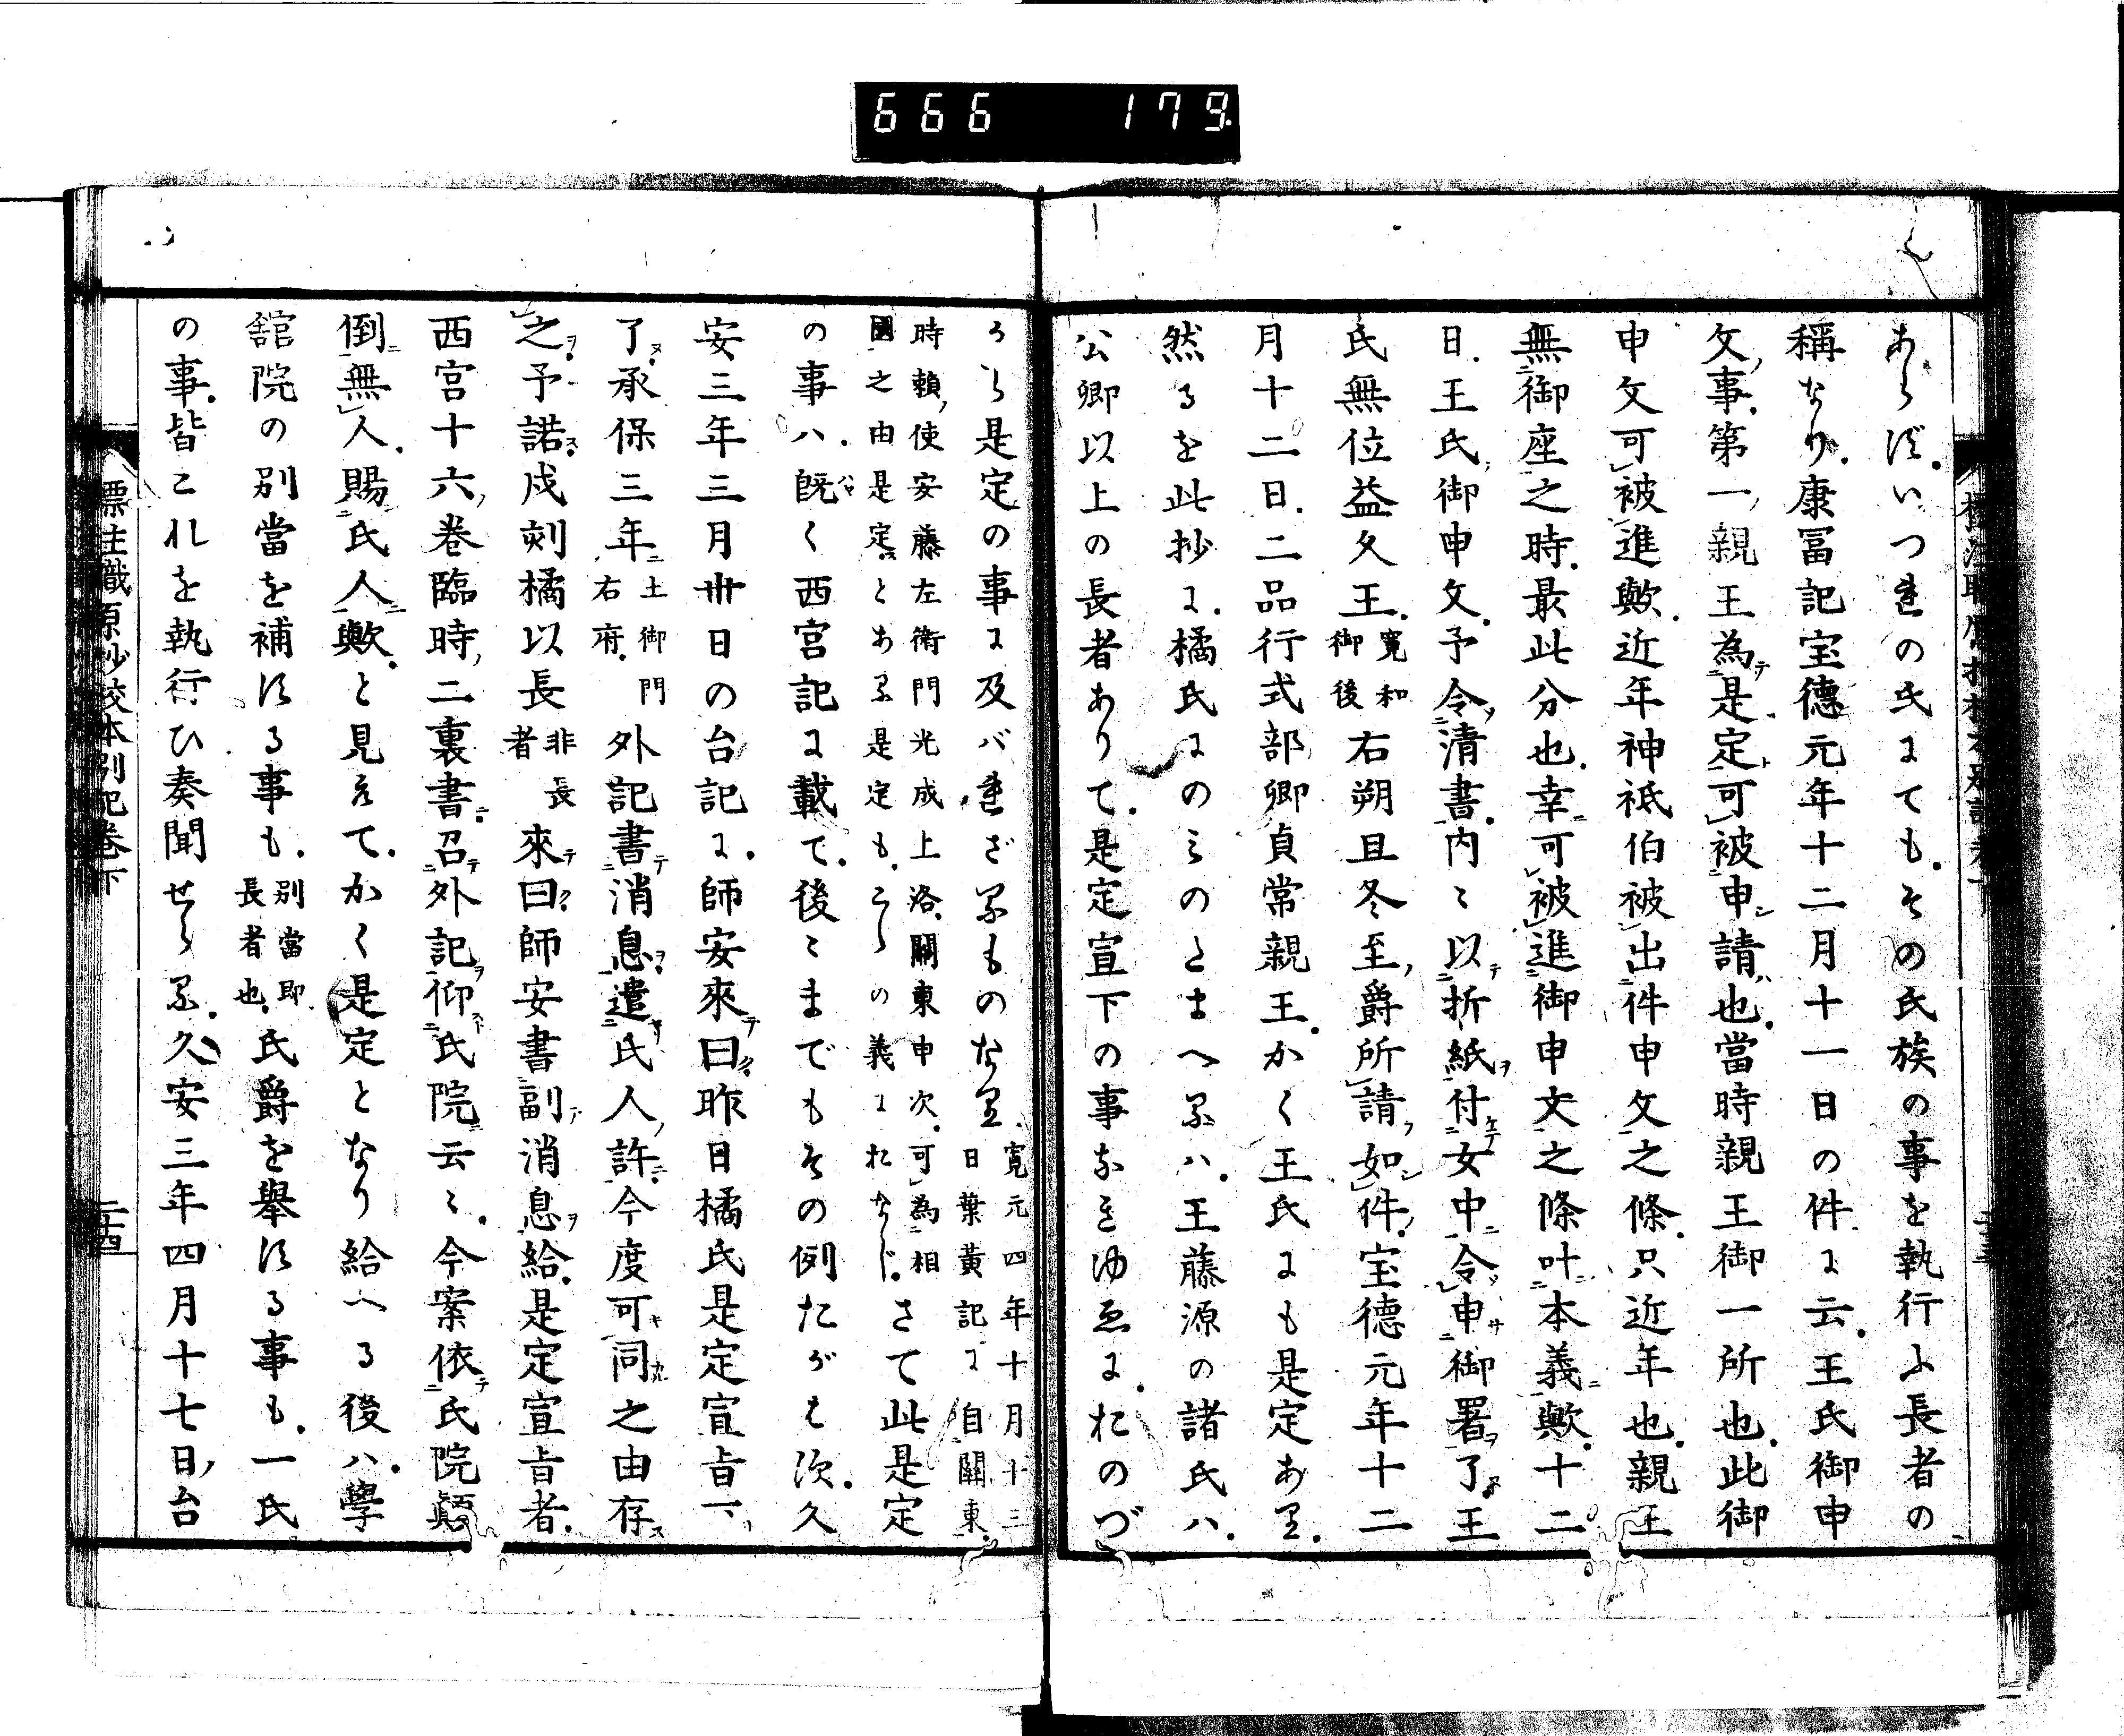 666 179
あらず．いつれの氏にても．その氏族の事を執行ふ長者の
稱なり．康冨記宝德元年十二月十一日の件に云．王氏御申
文事．第一親王為是定可被申請也．當時親王御一所也．此御
申文可被進歟．近年神祇伯被出件申文之條．只近年也．親王
無御座之時．最此分也．幸可被進御申文之條叶本義歟．十二
日．王氏御申文．予令清書．内〻以折紙付女中令申御署了．王
氏無位益久王．寛和御後右朔旦冬至爵所請如件．宝德元年十二
月十二日．二品行式部卿貞常親王．かく王氏にも是定あり．
然るを此抄に．橘氏にのみのとまへるハ．王藤源の諸氏ハ．
公卿以上の長者ありて．是定宣下の事なきゆゑに．おのづ
から是定の事に及バれざるものなり．寛元四年十月十三日葉黄記に自關東．
時頼使安藤左衛門光成上洛．關東申次．可為相國之由是定とある是定も．こゝの義におなじ．さて此是定
の事ハ．既く西宮記に載て．後こまでもその例たがはず．久
安三年三月卅日の台記に．師安來曰．昨日橘氏是定宣旨下
了．承保三年土御門右府．外記書消息遣氏人許．今度可同之由存
之．予諾．戌刻橘以長非長者來曰．師安書副消息給．是定宣旨者．
西宮十六巻臨時二裏書．召外記仰氏院云〻．今案依氏院顛
倒無人．賜氏人歟．と見えて．かく是定となり給へる後ハ．學
舘院の別當を補する事も．別當即長者也．氏爵を舉する事も．一氏
の事．皆これを執行ひ奏聞せらる．久安三年四月十七日．台
標注職原抄校本別記巻下
二十四